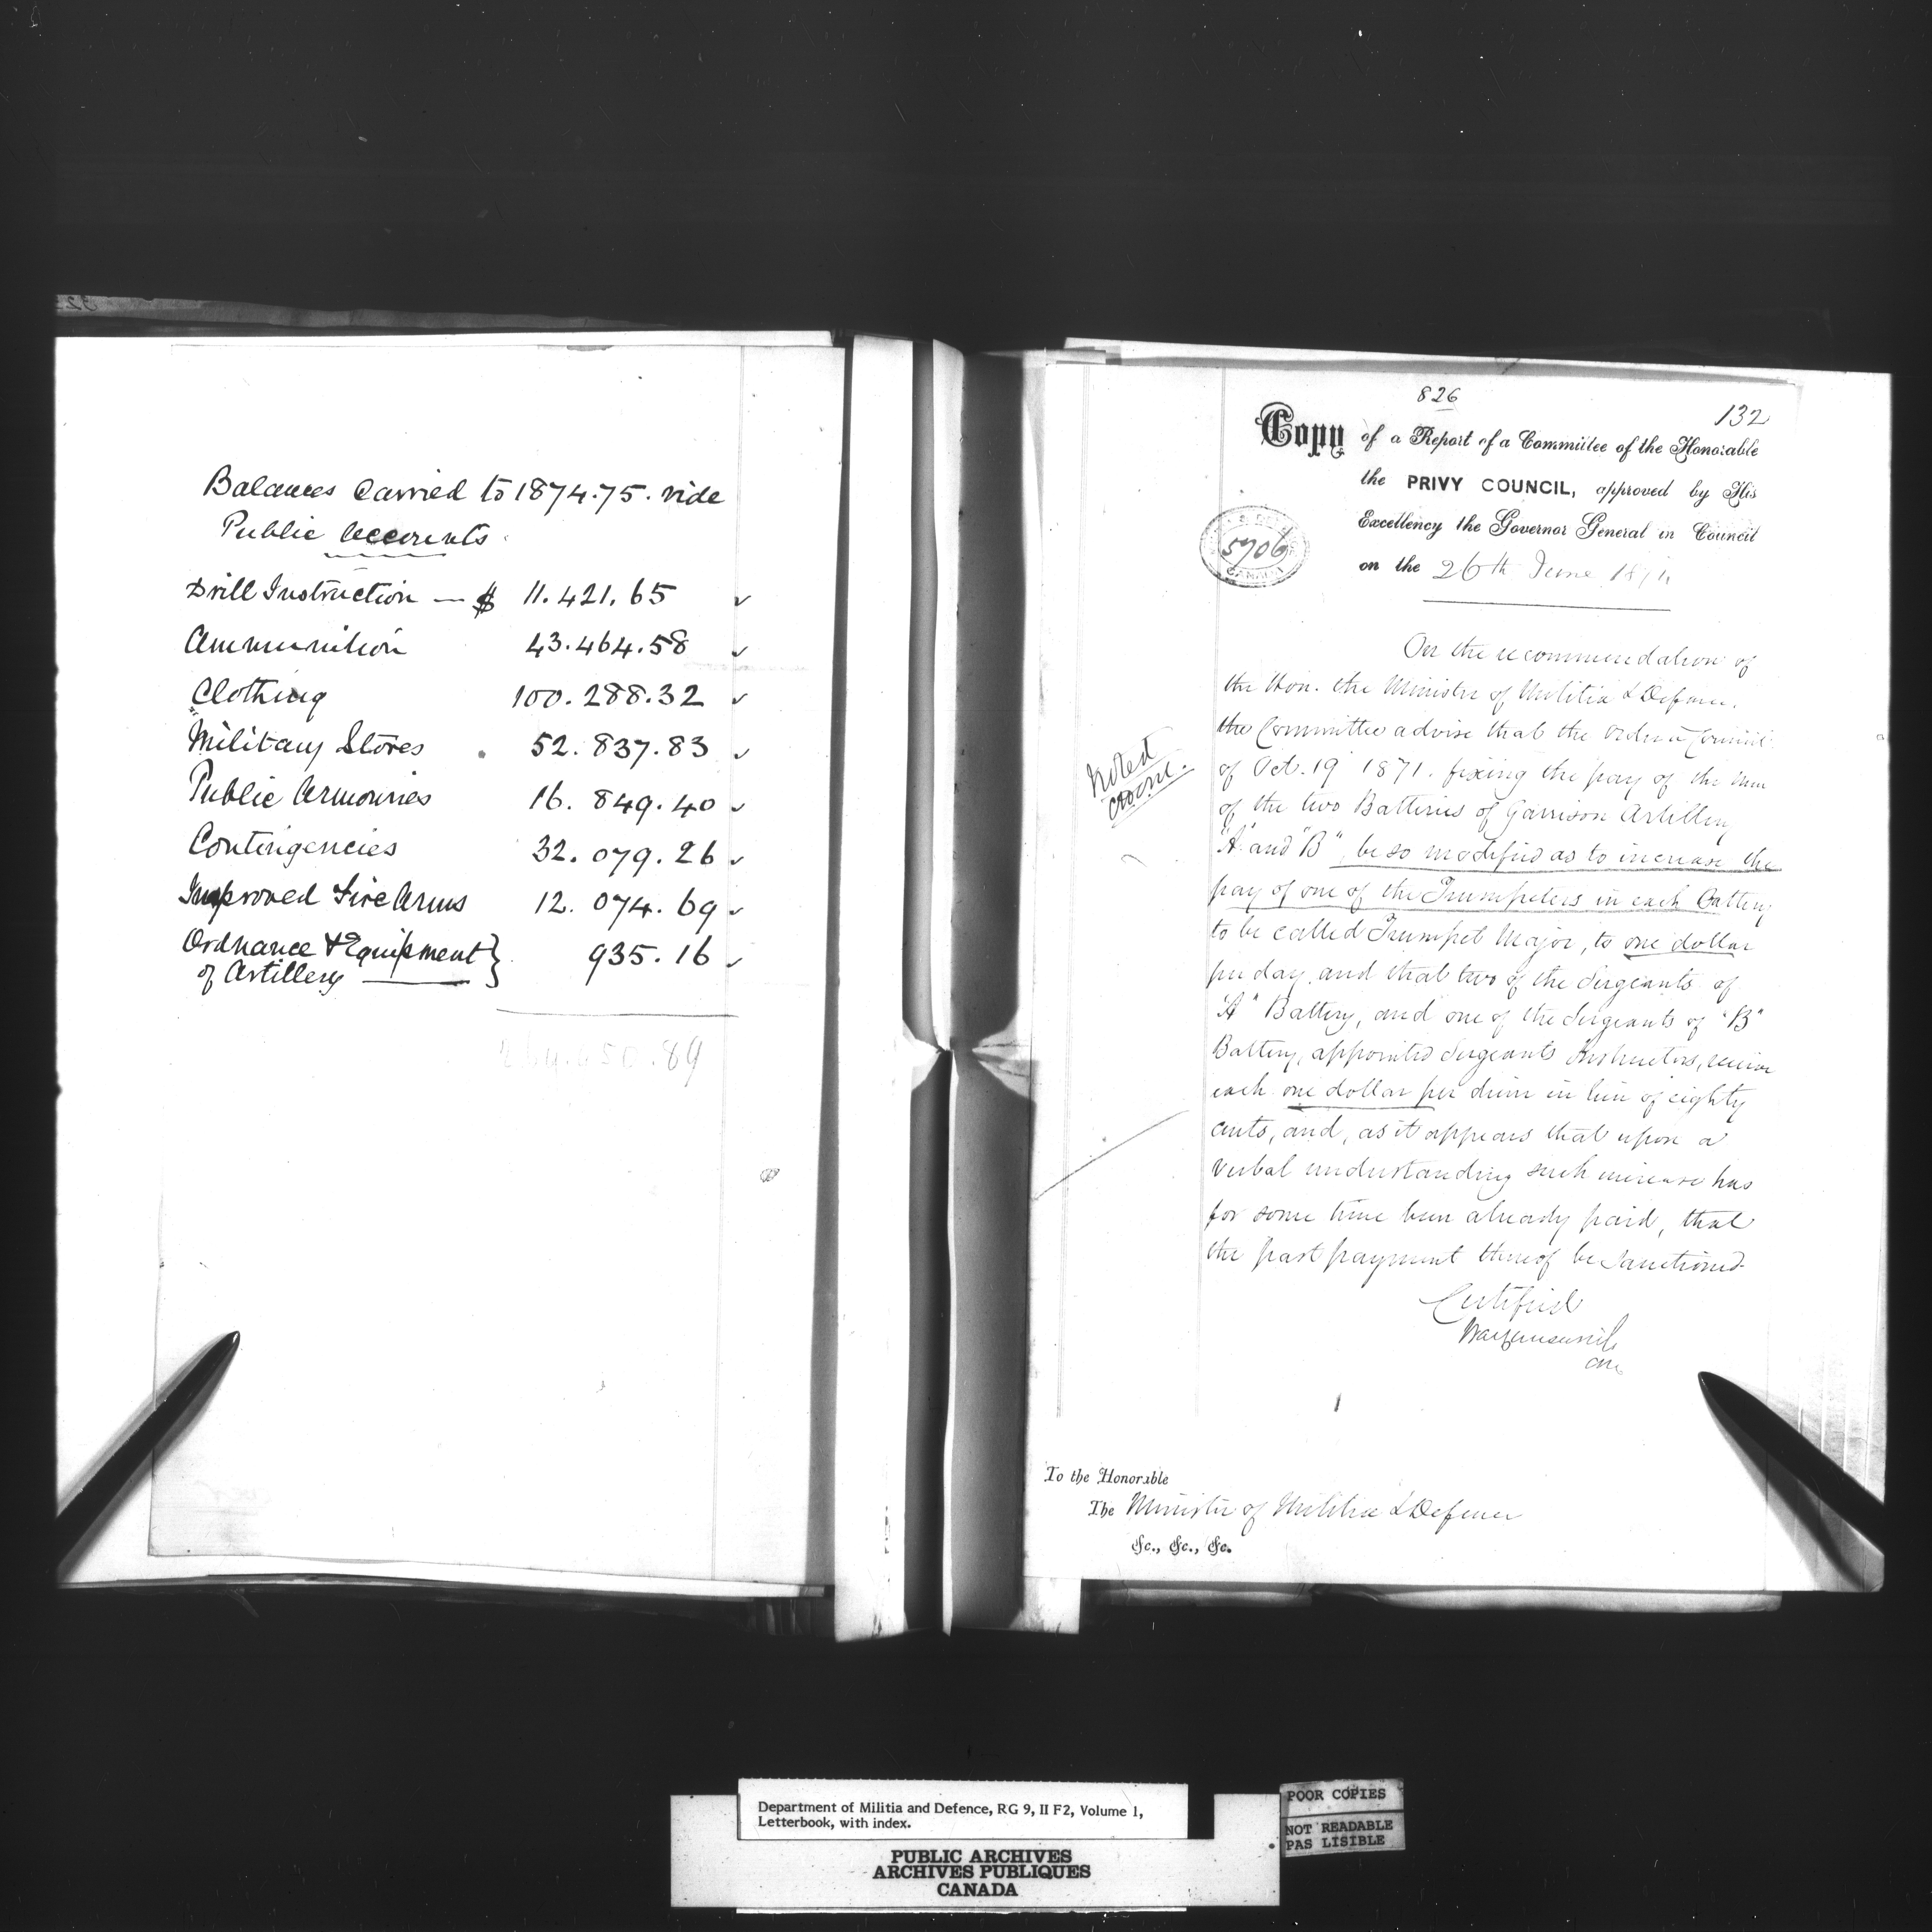 Balances Carried to 1874.75. vide
Public Accounts.
Drill Instruction — $ 11.421.65
Ammunition 43.464.58
Clothing 100.288.32
Military Stores 52.837.83
Public Armouries 16.849.40
Contingencies 32.079.26
Improved Fire Arms 12.074.69
Ordnance & Equipment } 935.16
of Artillery
826
132
Copy of a Report of a Committee of the Honorable
the PRIVY COUNCIL, approved by His
Excellency the Governor General in Council
on the 26th June 1874
5706
CANADA
On the recommendation of
the Hon. the Minister of Militia & Defence,
the Committee advise that the Order in Council
of Oct. 19 1871. fixing the pay of the men
of the two Batteries of Garrison Artillery
"A" and "B", be so modified as to increase the
pay of one of the Trumpeters in each Battery
to be called Trumpet Major, to one dollar
per day. and that two of the Sergeants of
"A" Battery, and one of the Sergeants of "B"
Battery, appointed Sergeants Instructors, receive
each one dollar per diem in lieu of eighty
cents, and, as it appears that upon a
verbal understanding such increase has
for some time been already paid, that
the past payment thereof be sanctioned
Certified
Noted
To the Honorable
The Minister of Militia & Defence
&c., &c., &c.
Department of Militia and Defence, RG 9, II F2, Volume 1,
Letterbook, with index.
PUBLIC ARCHIVES
ARCHIVES PUBLIQUES
CANADA
POOR COPIES
NOT READABLE
PAS LISIBLE